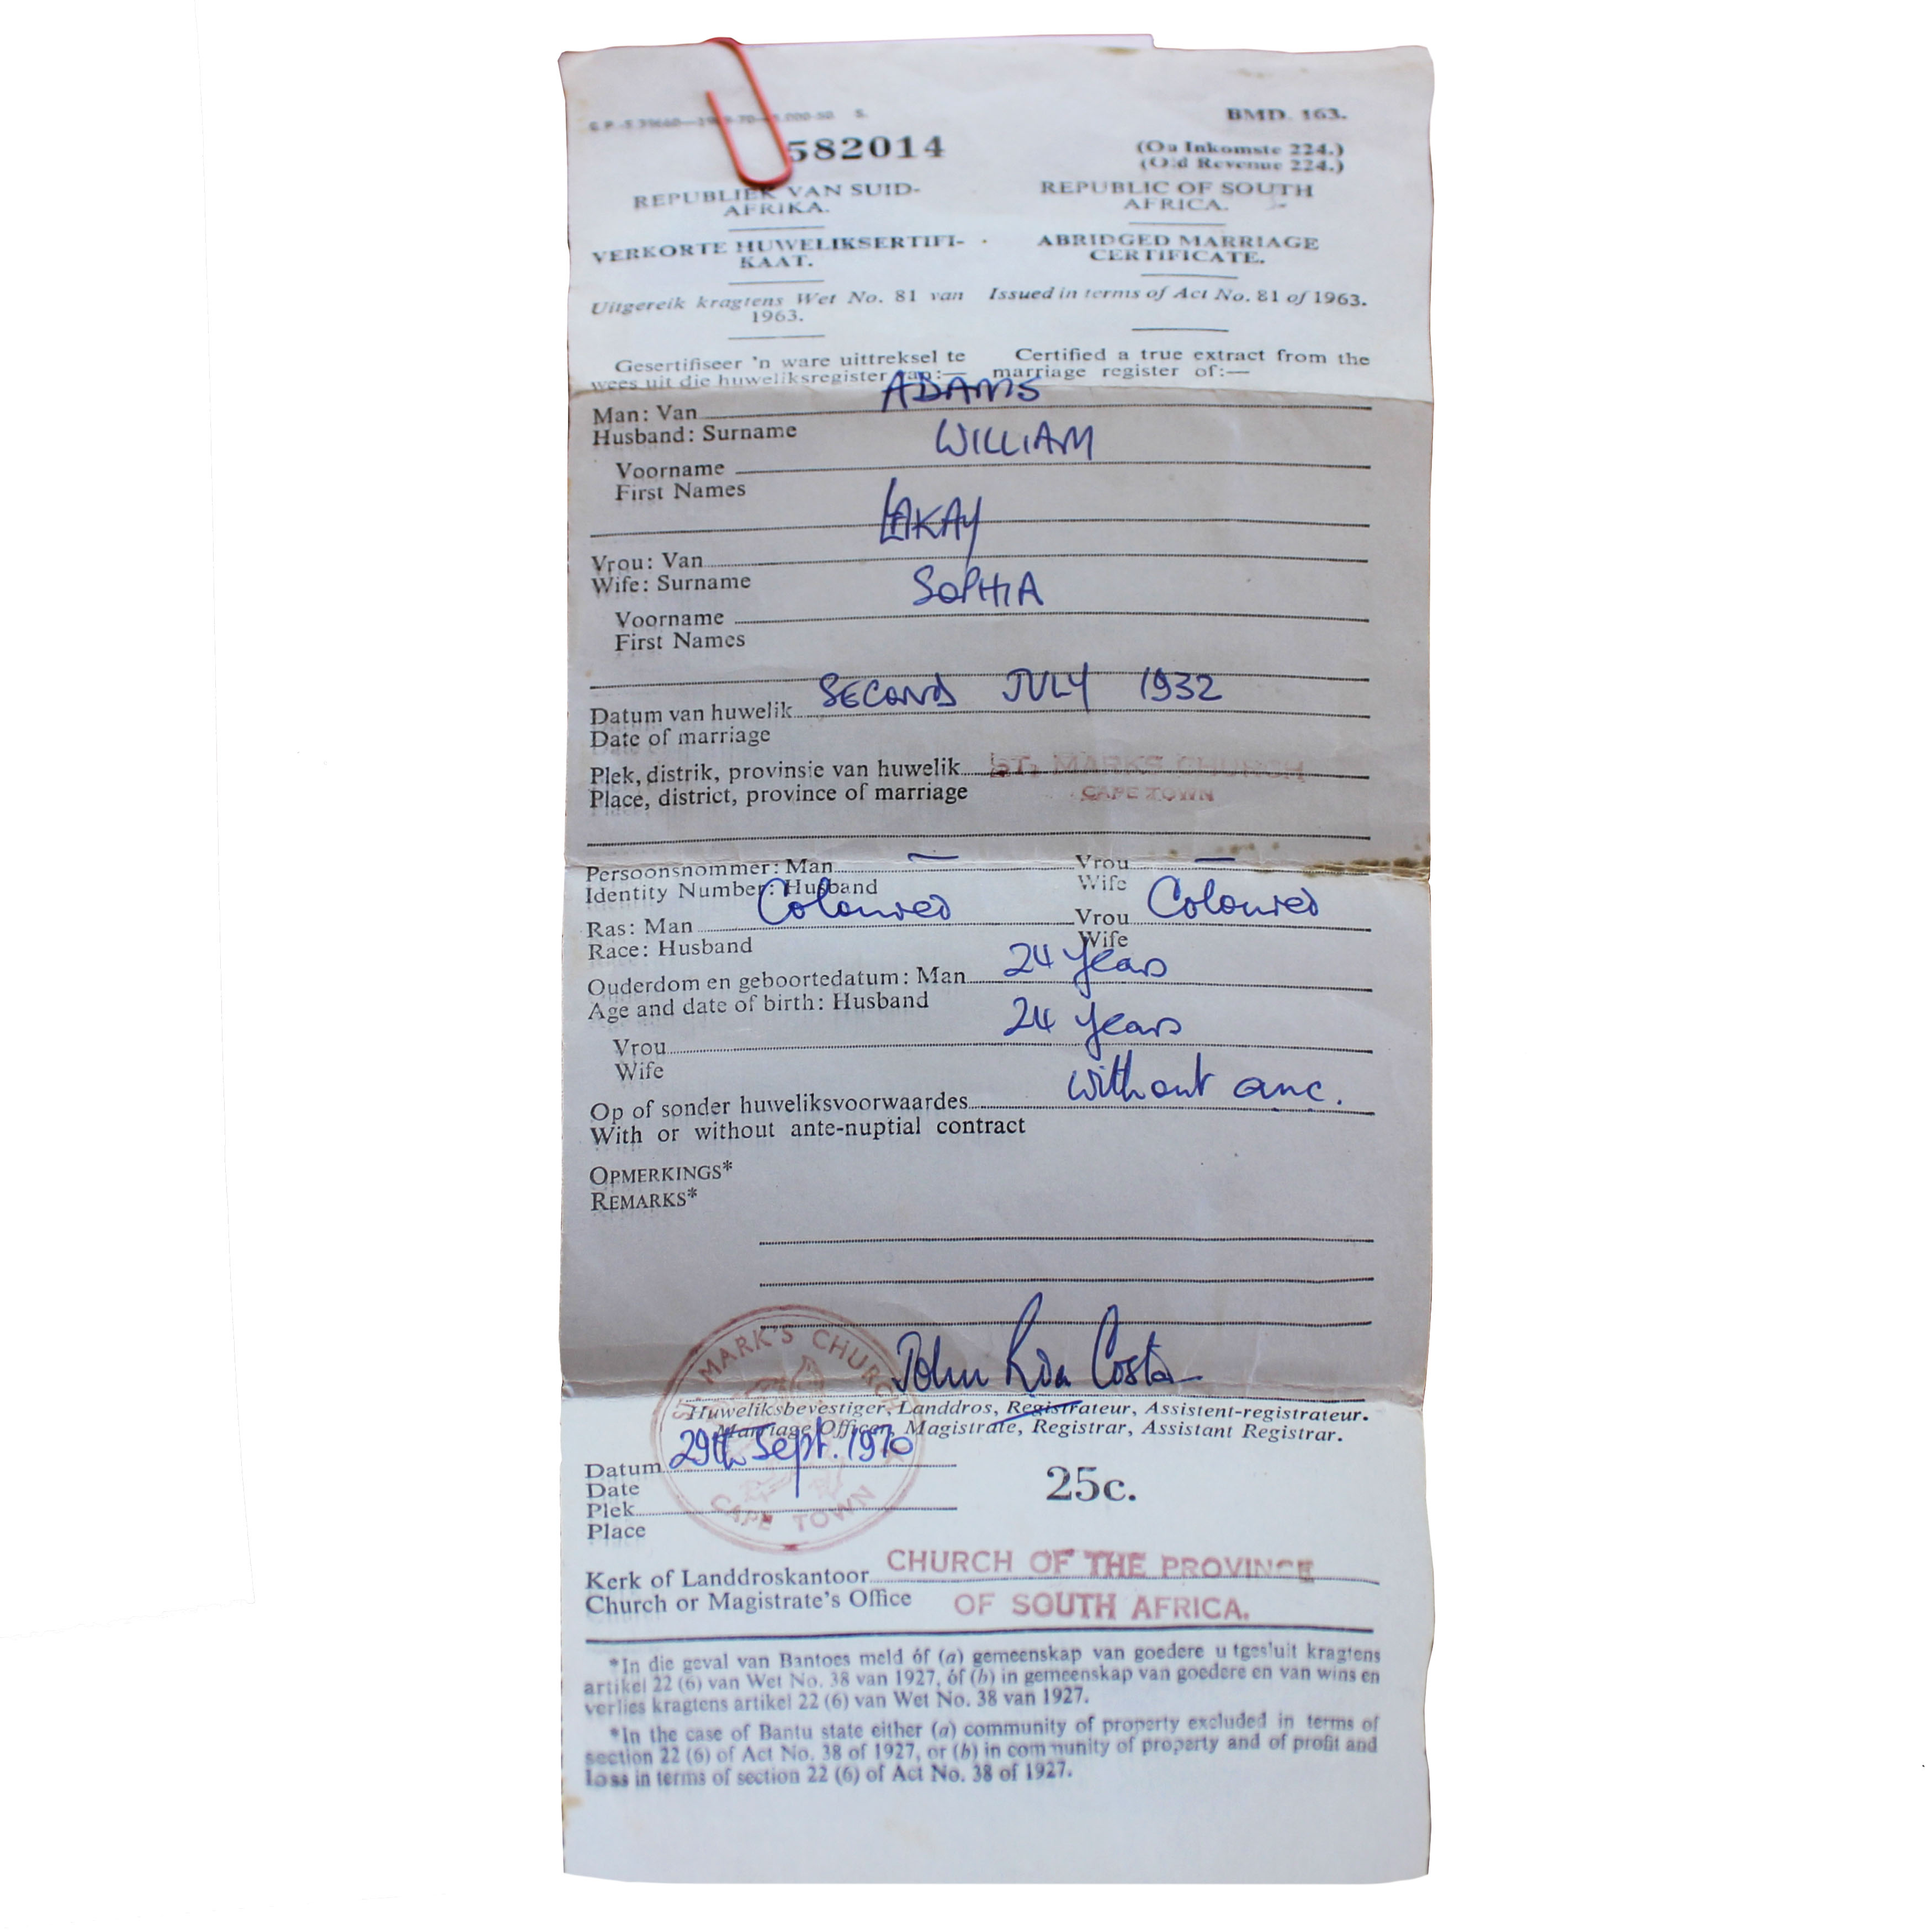 BMD. 163.
582014
(Ou Inkomste 224.)
(Old Revenue 224.)
REPUBLIEK VAN SUID-
AFRIKA.
REPUBLIC OF SOUTH
AFRICA.
VERKORTE HUWELIKSERTIFI-
KAAT.
ABRIDGED MARRIAGE
CERTIFICATE.
Uitgereik kragtens Wet No. 81 van
1963.
Issued in terms of Act No. 81 of 1963.
Gesertifiseer 'n ware uittreksel te
wees uit die huweliksregister van:—
Certified a true extract from the
marriage register of:—
Man: Van ADAMS
Husband: Surname
WILLIAM
Voorname
First Names
LAKAY
Vrou: Van
Wife: Surname
SOPHIA
Voorname
First Names
Datum van huwelik SECOND JULY 1932
Date of marriage
Plek, distrik, provinsie van huwelik ST. MARKS CHURCH
Place, district, province of marriage CAPE TOWN
Persoonsnommer: Man — Vrou —
Identity Number: Husband Wife
Ras: Man Coloured Vrou Coloured
Race: Husband Wife
Ouderdom en geboortedatum: Man 24 years
Age and date of birth: Husband
Vrou 24 years
Wife
Op of sonder huweliksvoorwaardes without anc.
With or without ante-nuptial contract
OPMERKINGS*
REMARKS*
ST. MARK'S CHURCH
CAPE TOWN
John Costa
Huweliksbevestiger, Landdros, Registrateur, Assistent-registrateur.
Marriage Officer, Magistrate, Registrar, Assistant Registrar.
Datum 29th Sept. 1970
Date
Plek
Place
25c.
Kerk of Landdroskantoor CHURCH OF THE PROVINCE
Church or Magistrate's Office OF SOUTH AFRICA.
*In die geval van Bantoes meld óf (a) gemeenskap van goedere u tgesluit kragtens
artikel 22 (6) van Wet No. 38 van 1927, óf (b) in gemeenskap van goedere en van wins en
verlies kragtens artikel 22 (6) van Wet No. 38 van 1927.
*In the case of Bantu state either (a) community of property excluded in terms of
section 22 (6) of Act No. 38 of 1927, or (b) in community of property and of profit and
loss in terms of section 22 (6) of Act No. 38 of 1927.